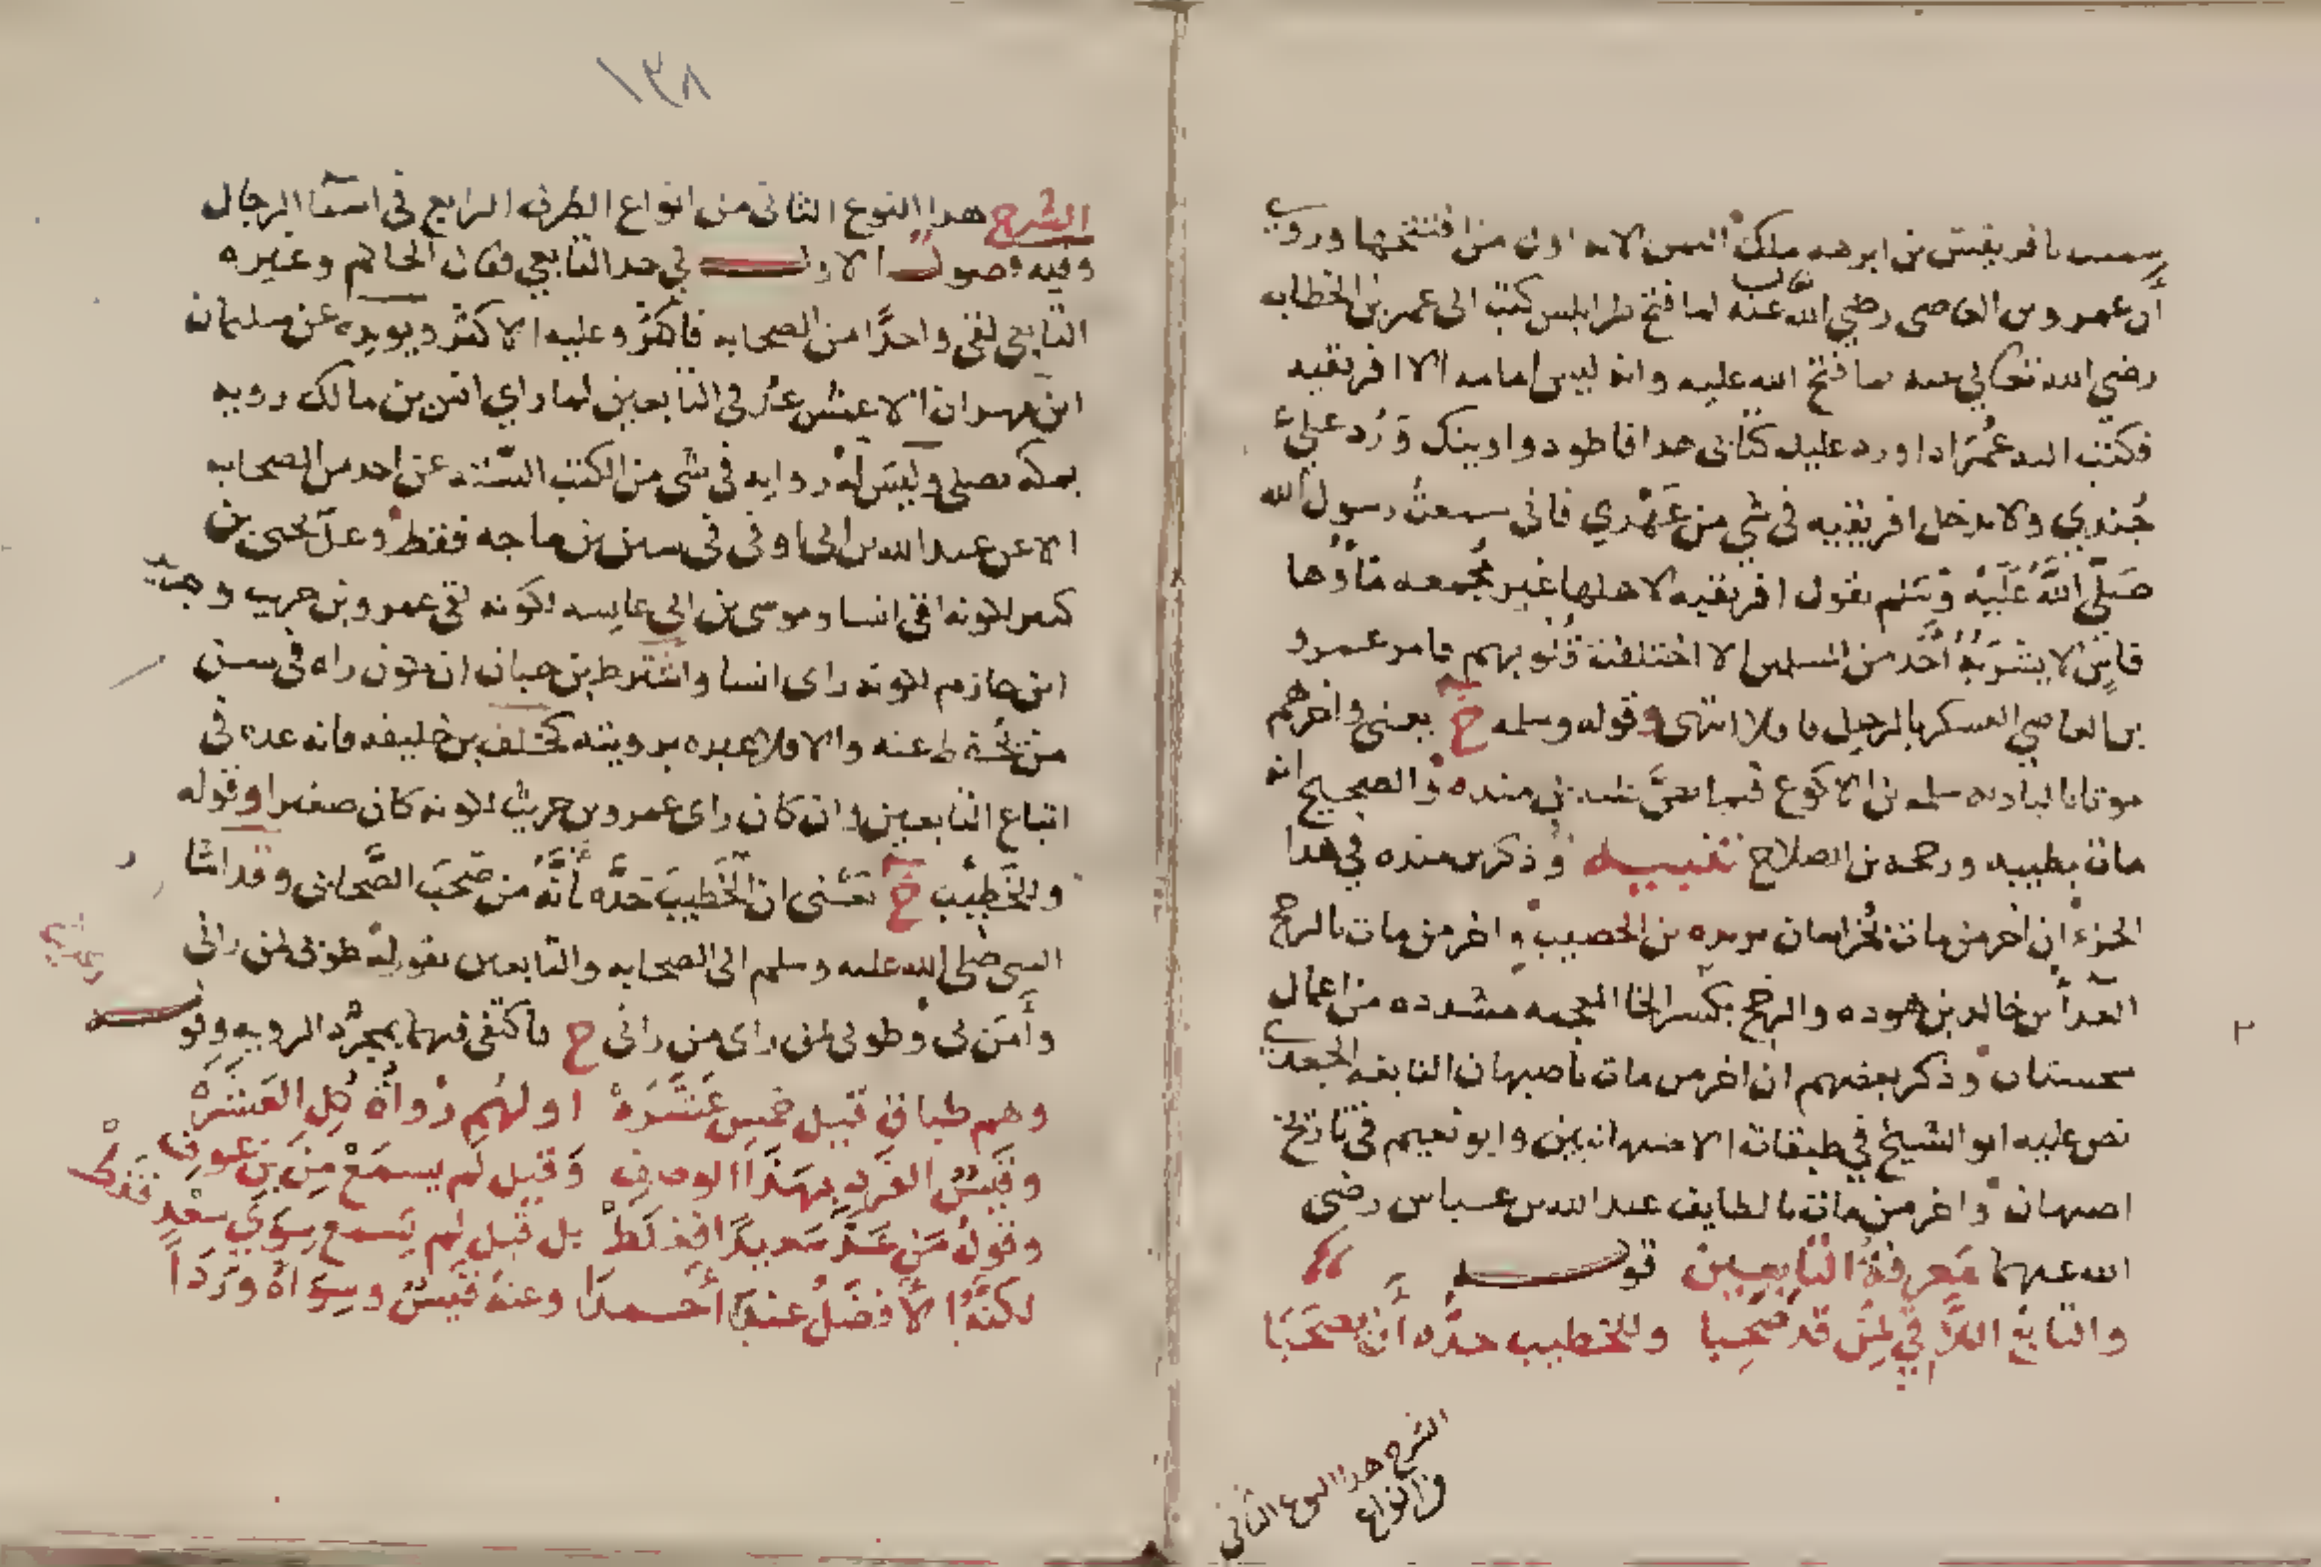 سميت بافريقيس بن ابرهه ملك اليمن لانه اول من افتتحها وروي
ان عمرو بن العاصي رضي الله تعالى عنه لما فتح طرابلس كتب الى عمر بن الخطاب
رضي الله تعالي عنه بما فتح الله عليه وانه ليس امامه الا افريقيه
فكتب اليه عُمَر اذا ورد عليك كتابي هدا فاطو دواوينك وَرُد عَلَيّ
جُندي ولا تدخل افريقيه في شي من عَهْدي فاني سمعتُ رسول الله
صَلّي اللَّهُ عَلَيْهِ وَسَلم يقول افريقيه لاهلها غير مُجمعه مَاؤُها
قاسٍ لا يشرَبهُ أحَد من المسلمين الا اختلفت قُلُوبهم فامر عمرو
بن العاصي العسكر بالرحيل قافلا انتهى وقوله وسلمه خ يعني واخرهم
موتا بالباديه سلمه بن الاكوع فيما بن منده والصحيح انه
مات بطيبه ورجحه بن الصلاح تنبيه وذكر بن منده في هدا
الجزء ان اخر من مات بخُراسان بريده بن الحصيب واخر من مات بالرخ
العداء بن خالد بن هوده والرخ بكسر الخا المعجمه مشدده من اعمال
سجستان وذكر بعضهم ان اخر من مات باصبهان النابغه الجعدي
نص عليه ابو الشيخ في طبقات الاصبهانيين وابو نعيم في تاريخ
اصبهان واخر من مات بالطايف عبد الله بن عباس رضي
الله عنهما مَعرفةُ التابعين قوله
والتابعُ اللّاقي لِمَن قد صَحِبا وللخطيب حدُّه أن يصحَبَا
الشرح هدا النوع الثاني
من انواع
١٣٨
الشرح هدا النوع الثاني من انواع الطرف الرابع في اسما الرجال
وفيه فصول الاول في حد التابعي فقال الحاكم وغيره
التابعي لقي واحدًا من الصحابه فاكثر وعليه الاكثر ويويده عن سليمان
ابن مهران الاعمش عُدّ في التابعين لما راي انس بن مالك رويه
بمكه يصلي وليس له روايه في شي من الكتب الستة عن احد من الصحابه
الا عن عبد الله بن ابي اوفى في سنن بن ماجه فقط وعدّ يحيى بن
كثير لكونه لقي انسا وموسى بن ابي عايشه لكونه لقي عمرو بن حريث وجرير
ابن حازم لكونه راى انسا واشترط بن حبان ان يكون راه في سن
من يحفظ عنه والا فلا عبره برويته كخلف بن خليفه فانه عده في
اتباع التابعين وان كان راى عمرو بن حريث لكونه كان صغيرا وقوله
وللخَطِيْب خ يَعْني ان الخَطِيبَ حَدَّه بأنَّهُ من صَحبَ الصَّحابي وقد اشا
النبي صلى الله عليه وسلم الى الصحابه والتابعين بقوله طوبى لمن راني
وأمَن بي وطوبى لمن راى من راني ح فاكتفى فيهما بمجرّد الرويه وقو
وهم طباق قيل خمس عَشَرَهْ اولهُم رُواةُ كل العَشَرَهْ
وقَيسٌ الفَردِ بِهَذَا الوصف وَقيل لم يسمَعْ مِنَ بن عَوفِ
وقولُ مَن عَدَّ سَعِيدًا فغلَطْ بل قيل لم يَسمع سِوَي سَعْدٍ فَقَطْ
لكنَّهُ الأفضَلُ عند أحمدا وعنهُ قيسٌ وسِواهُ وَرَدَا